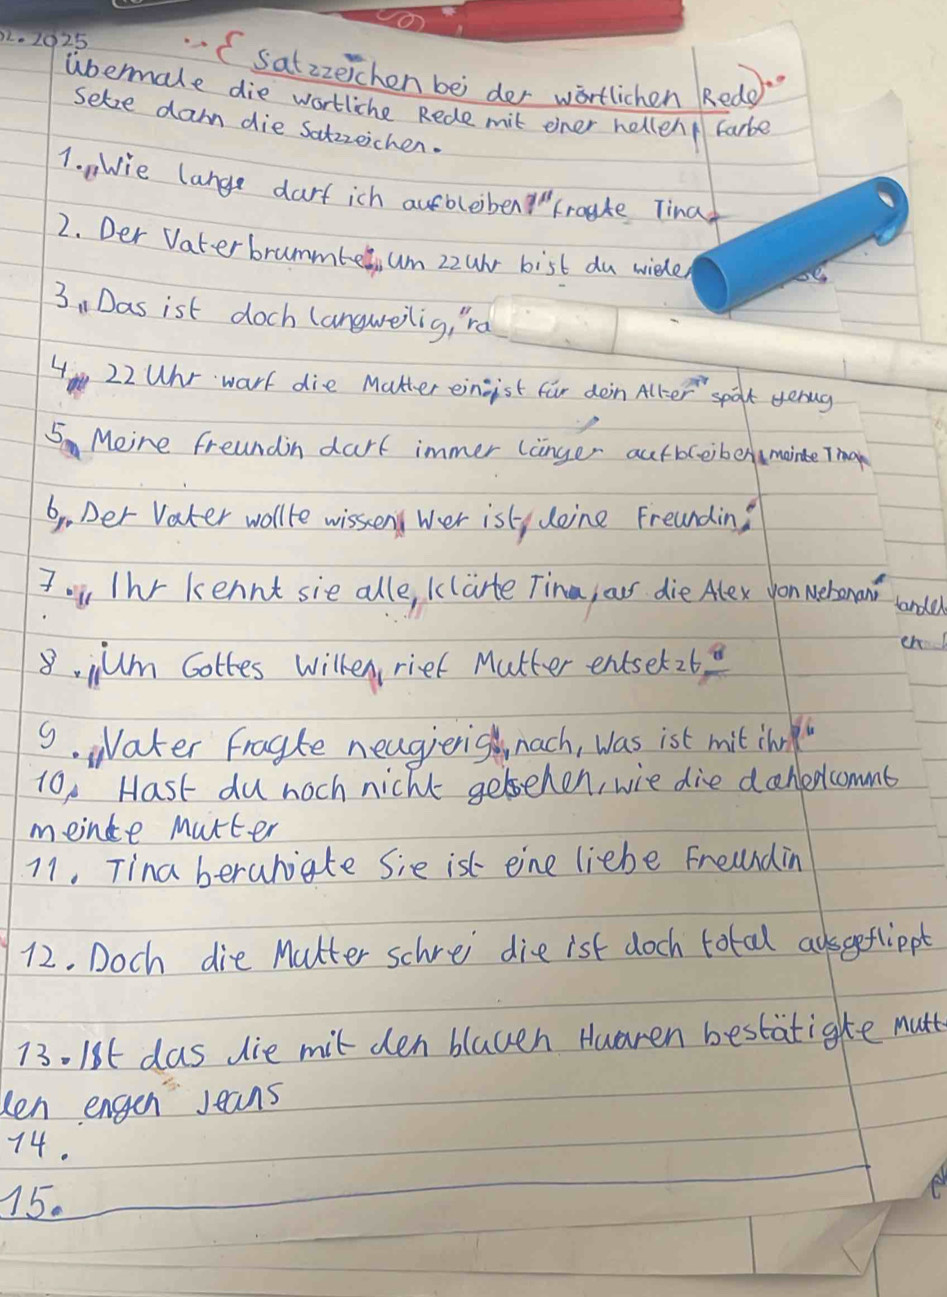 2.2025
Satzzeichen bei der wörtlichen Rede
Übermale die wörtliche Rede mit einer hellen Farbe
Setze dann die Satzzeichen.
1. „Wie lange darf ich aufbleiben?" fragte Tina.
2. Der Vater brummte: „Um 22 Uhr bist du wieder
3. „Das ist doch langweilig," ra
4. „22 Uhr warf die Mutter ein: ist für dein Alter" spät genug
5. „Meine Freundin darf immer länger aufbleiben, meinte Tina
6. „Der Vater wollte wissen, Wer ist, deine Freundin?
7. „Ihr kennt sie alle, klärte Tina, auf die Alex von Nebenan"
8. „Um Gottes Willen, rief Mutter entsetzt."
9. „Vater fragte neugierig, nach, Was ist mit ihr?"
10. Hast du noch nicht gesehen, wie die daherkommt
meinte Mutter
11. Tina beruhigte Sie ist eine liebe Freundin
12. Doch die Mutter schrei die ist doch total ausgeflippt
13. Ist das die mit den blauen Haaren bestätigte Mutt
den engen Jeans
14.
15.